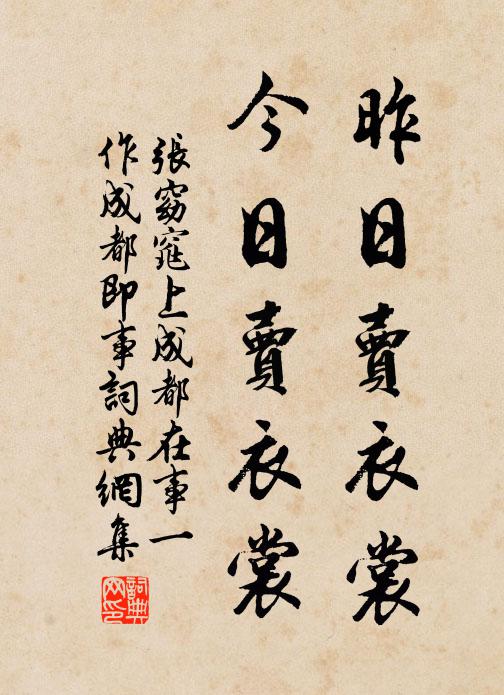 昨日賣衣裳
今日賣衣裳
張窈窕上成都在事一
作成都即事詞典網集
詞典網印